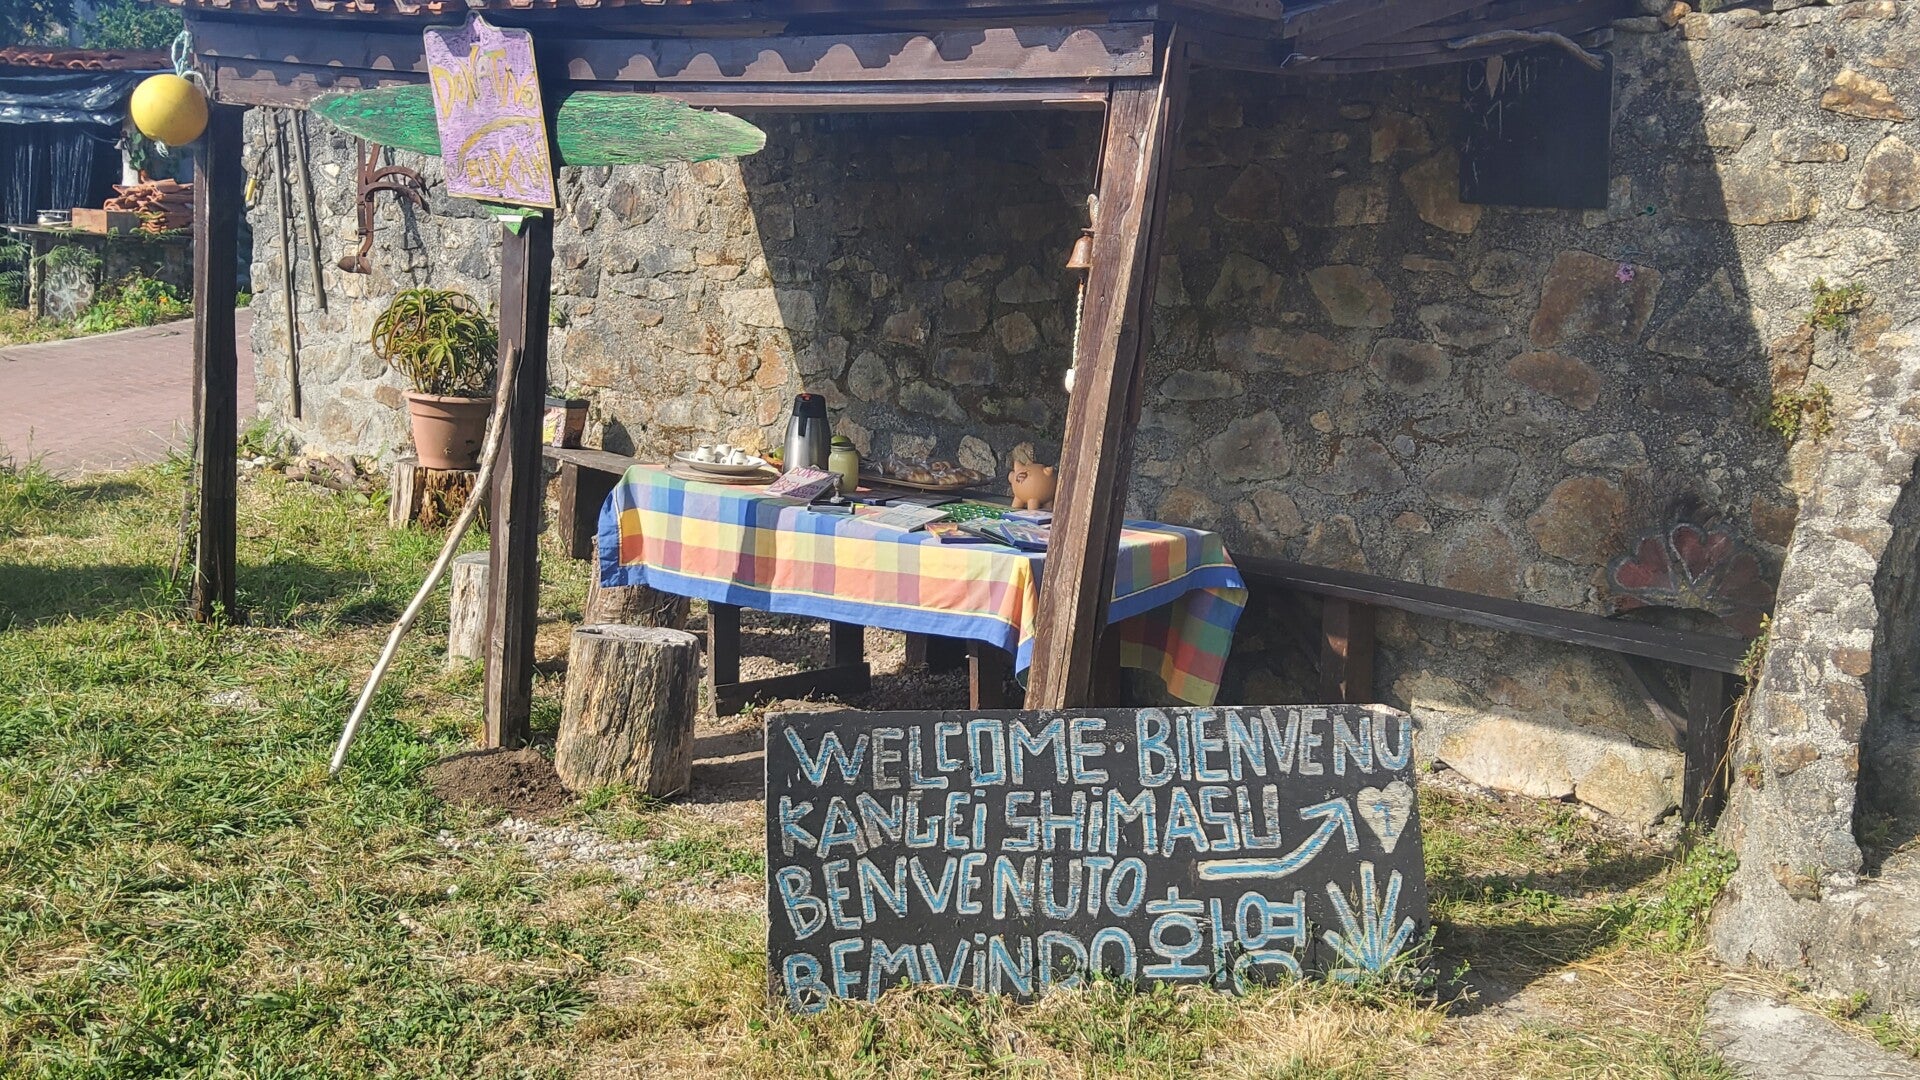 DONATIVO
WELCOME · BIENVENU
KANGEI SHIMASU
1
BENVENUTO
BEMVINDO 환영